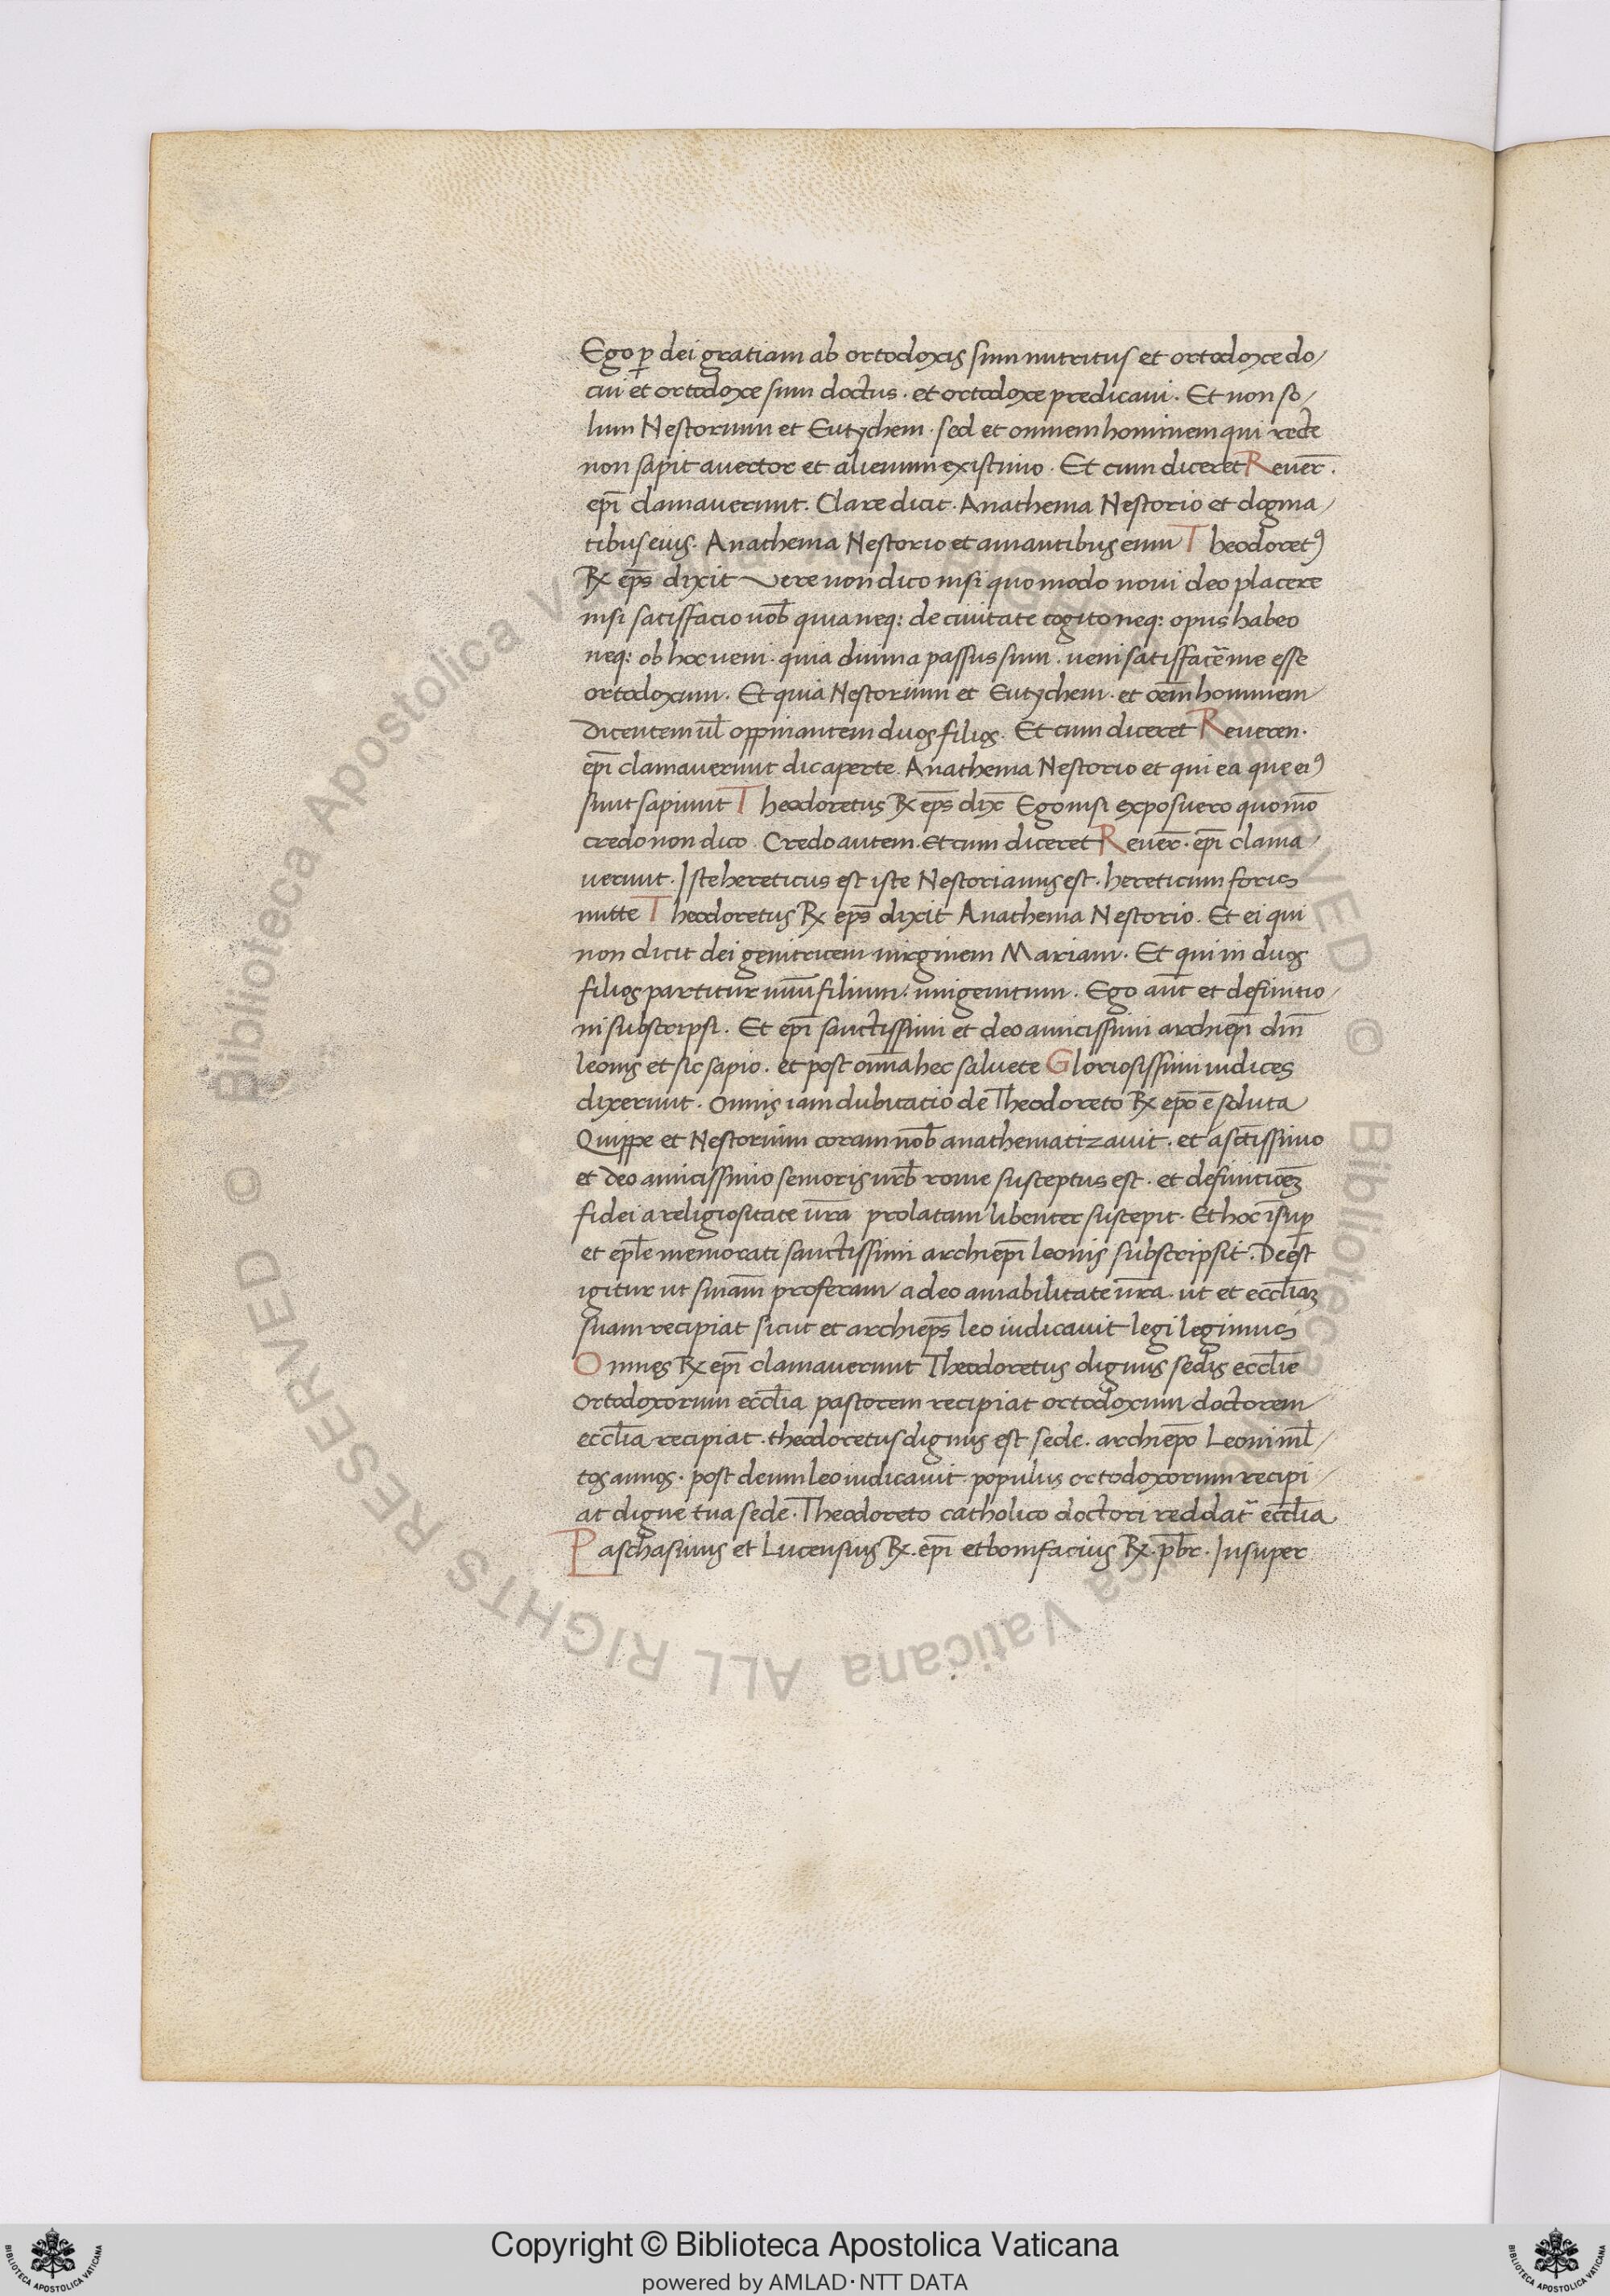 Ego ꝑ dei gratiam ab ortodoxis sum nutritus et ortodoxe do/
cui et ortodoxe sum doctus . et ortodoxe predicaui . Et non so/
lum Nestorium et Eutychem . sed et omnem hominem qui recte
non sapit auertor et alienum existimo . Et cum diceret Reuer̄ .
ep̄i clamauerunt . Clare dicit . Anathema Nestorio et dogma/
tibus eius . Anathema Nestorio et amantibus eum Theodoretꝰ
R̨x ep̄s dixit Vere non dico nisi quo modo noui deo placere
nisi satisfacio uob̄ quia neq: de ciuitate cogito neq: opus habeo
neq: ob hoc ueni . quia diuina passus sum . ueni satisfac̄e me esse
ortodoxum . Et quia Nestorium et Eutychem . et oēm hominem
Dicentem ul̄ oppinantem duos filios . Et cum diceret Reueren .
ep̄i clamauerunt dic aperte . Anathema Nestorio et qui ea que eiꝰ
sunt sapiunt Theodoretus Rx ep̄s dix̄ Ego nisi exposuero quomō
credo non dico . Credo autem . Et cum diceret Reuer̄ . ep̄i clama/
uerunt . Iste hereticus est iste Nestorianus est . hereticum foris
mitte Theodoretus Rx ep̄s dixit Anathema Nestorio . Et ei qui
non dicit dei genitricem uirginem Mariam . Et qui in duos
filios partitur unū filium . unigenitum . Ego aūt et definitio/
ni subscripsi . Et ep̄i sanctissimi et deo amicissimi archiep̄i dm̄
leonis et sic sapio . et post omā hec saluete Gloriosissimi iudices
dixerunt . Omnis iam dubitatio de Theodoreto Rx ep̄o ē soluta
Quippe et Nestorium coram nob̄ anathematizauit . et a sc̄tissimo
et deo amicissimo senioris urb̄ rome susceptus est . et definitioēꝫ
fidei a religiositate ur̄a prolatam libenter suscepit . Et hoc īsuꝑ
et epl̄e memorati sanctissimi archiep̄i leonis subscripsit . Deest
igitur ut sniām proferam a deo amabilitate ur̄a . ut et eccl̄iaꝫ
suam recipiat sicut et archiep̄s leo iudicauit legi legimus
Omnes Rx ep̄i clamauerunt Theodoretus dignus sedis eccl̄ie
Ortodoxorum eccl̄ia pastorem recipiat ortodoxum doctorem
eccl̄ia recipiat . theodoretus dignus est sede . archiep̄o Leoni ml̄/
tos annos . post deum leo iudicauit populus ortodoxorum recipi/
at digne tua sede . Theodoreto catholico doctori reddat̄ eccl̄ia
Paschasinus et Lucensius Rx . ep̄i et bonifacius Rx . p̄br . Insuper
Copyright © Biblioteca Apostolica Vaticana
powered by AMLAD·NTT DATA